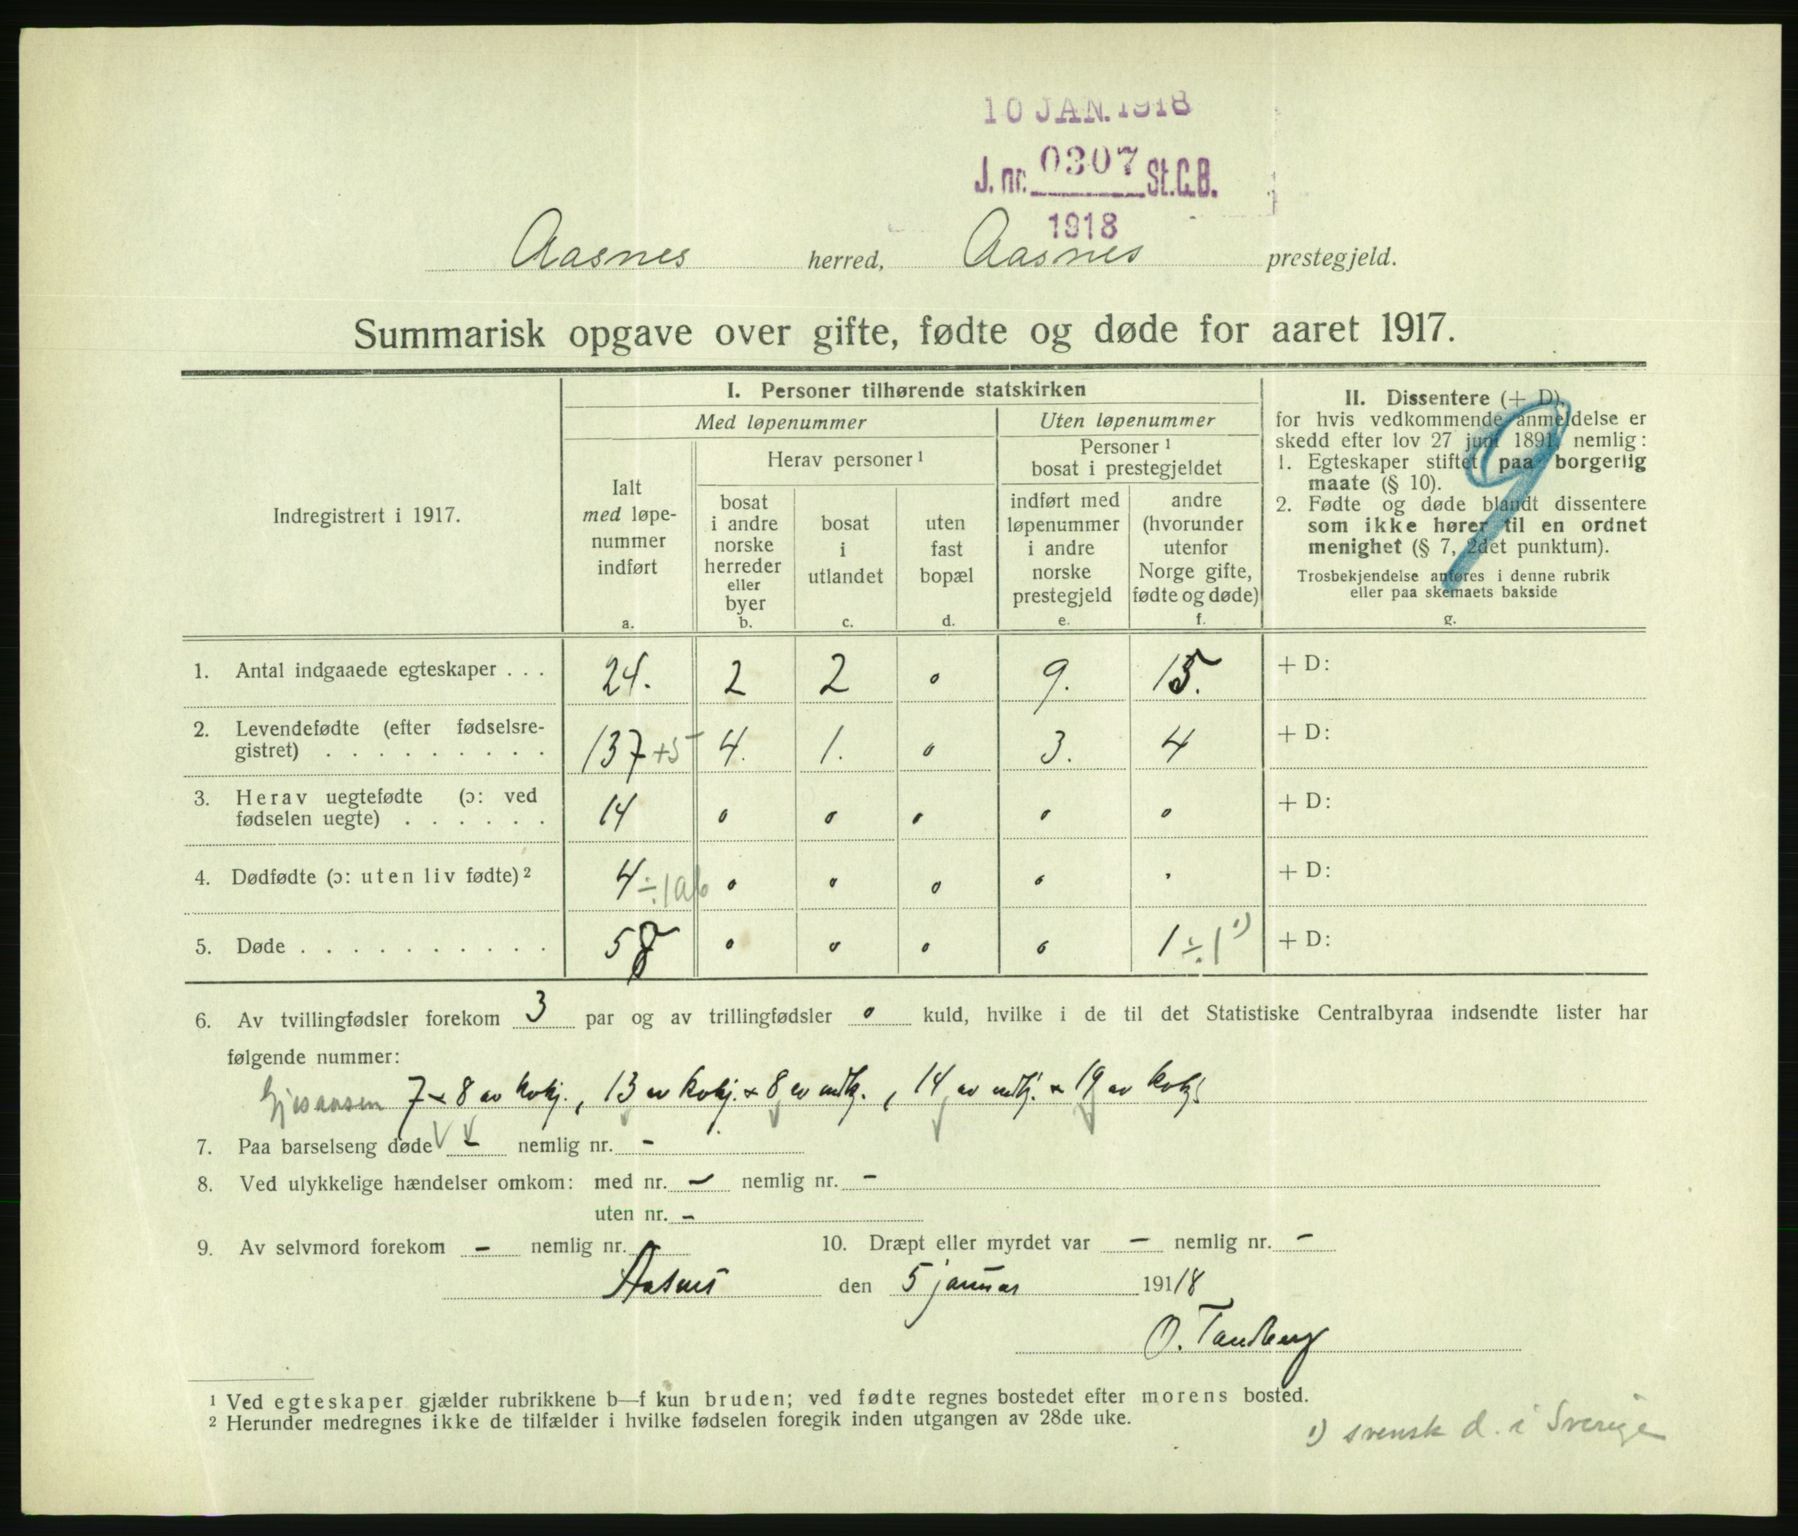 10 JAN. 1918
J. nr. 0307 St. C. B.
1918
Aasnes herred, Aasnes prestegjeld.
Summarisk opgave over gifte, fødte og døde for aaret 1917.
Indregistrert i 1917.
I. Personer tilhørende statskirken
Med løpenummer
Uten løpenummer
Ialt
med løpe-
nummer
indført
a.
Herav personer ¹
bosat
i andre
norske
herreder
eller
byer
b.
bosat
i
utlandet
c.
uten
fast
bopæl
d.
Personer ¹
bosat i prestegjeldet
indført med
løpenummer
i andre
norske
prestegjeld
e.
andre
(hvorunder
utenfor
Norge gifte,
fødte og døde)
f.
II. Dissentere (+ D),
for hvis vedkommende anmeldelse er
skedd efter lov 27 juni 1891, nemlig:
1. Egteskaper stiftet paa borgerlig
maate (§ 10).
2. Fødte og døde blandt dissentere
som ikke hører til en ordnet
menighet (§ 7, 2det punktum).
Trosbekjendelse anføres i denne rubrik
eller paa skemaets bakside
g.
9
1. Antal indgaaede egteskaper . . . 24. 2 2 0 9. 15. + D:
2. Levendefødte (efter fødselsre-
gistret) . . . . . . . . . 137 +5 4. 1. 0 3. 4 + D:
3. Herav uegtefødte (ɔ: ved
fødselen uegte) . . . . . . 14 0 0 0 0 0 + D:
4. Dødfødte (ɔ: uten liv fødte) ² 4 ÷1 ab 0 0 0 0 . + D:
5. Døde . . . . . . . . . . 58 0 0 0 0 1 ÷1 ¹) + D:
6. Av tvillingfødsler forekom 3 par og av trillingfødsler 0 kuld, hvilke i de til det Statistiske Centralbyraa indsendte lister har
følgende nummer:
Gjesaasen 7 & 8 av kvkj., 13 av kvkj. & 8 av mtkj., 14 av mtkj. & 19 av kvkj.
7. Paa barselseng døde - nemlig nr. -
8. Ved ulykkelige hændelser omkom: med nr. - nemlig nr. -
uten nr. -
9. Av selvmord forekom - nemlig nr. 10. Dræpt eller myrdet var - nemlig nr. -
Aasnes den 5 januar 1918
O. Tandberg
¹ Ved egteskaper gjælder rubrikkene b—f kun bruden; ved fødte regnes bostedet efter morens bosted.
² Herunder medregnes ikke de tilfælder i hvilke fødselen foregik inden utgangen av 28de uke.
¹) svensk d. i Sverige